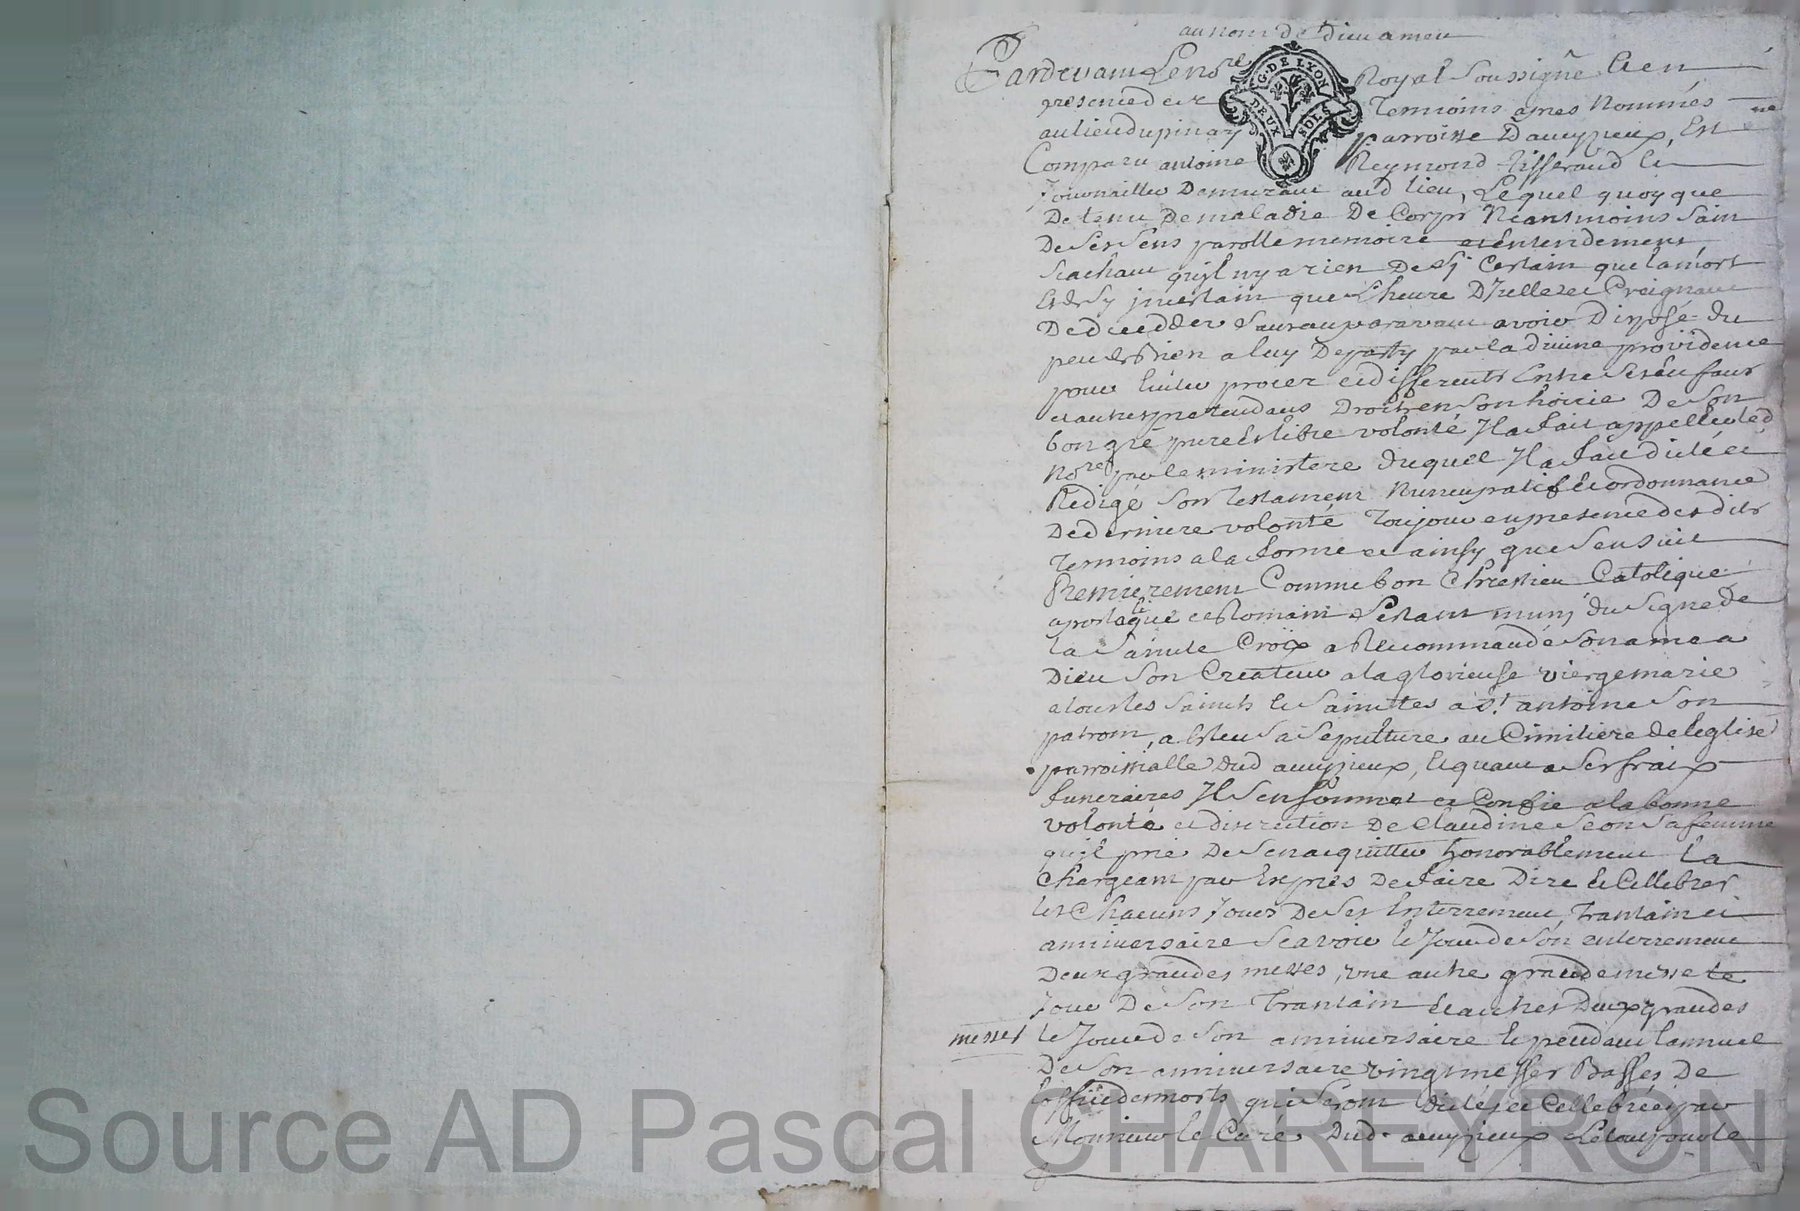 au nom de dieu amen
Pardevant Le no.re Royal Soussigné Et en
presence des Temoins apres Nommés
au lieu du pinay parroisse D'aveyzieux, Est
Comparu antoine Reymond tisserand Et
Journaillier Demeurant aud lieu, Lequel quoy que
Detenu De maladie De Corps Neansmoins Sain
De Ses Sens parolle memoire et Entendement
Scachant quil ny a rien De Sy Certain que la mort
Et de Sy jncertain que L'heure D'jcelle et Creignant
De decedder Sans auparavant avoir Disposé du
peu de Bien a luy Departy par la divine providence
pour Eviter procez et differents Entre Ses Enfans
et autres pretendans Droits en Son hoirie De Son
bon gré pure et libre volonté Il a fait appeller led
No.re par le ministere duquel Il a fait dicté et
Redigé Son Testament Nuncupatif et ordonnance
De derniere volonté Toujour en presence des dits
Temoins a la forme et ainsy que Sensuit
Premierement Comme bon Chrestien Catolique
apostolique et Romain Sestant muny du Signe de
la Sainte Croix a Recommandé Son ame a
Dieu Son Createur a la glorieuse vierge marie
a tous les Saints et Saintes a S.t antoine Son
patron, a Esleu Sa Sepulture au Cimitiere de leglise
parroissialle dud aveyzieux, Et quant a Ses fraix
funeraires Il Sen Sommet et Confie a la bonne
volonté et discretion De Claudine Seon Sa femme
quil prie De Sen acquitter honorablement La
Chargeant par Exprès De faire Dire Et Cellebrer
les Chacuns Jours De Ses Enterrement, Trantain et
anniversaire Scavoir le Jour de Son enterrement
Deux grandes messes, une autre grande messe le
Jour De Son Trantain Et autres Deux grandes
messes le Jour de Son anniversaire Et pendant lannuel
De Son anniversaire vingt messes Basses De
loffice des morts qui Seront dictes et Cellebrées par
Monsieur le Curé Dud. aveyzieux Le tout pour le
G. DE LYON
DEUX SOLS
Source AD Pascal CHAREYRON